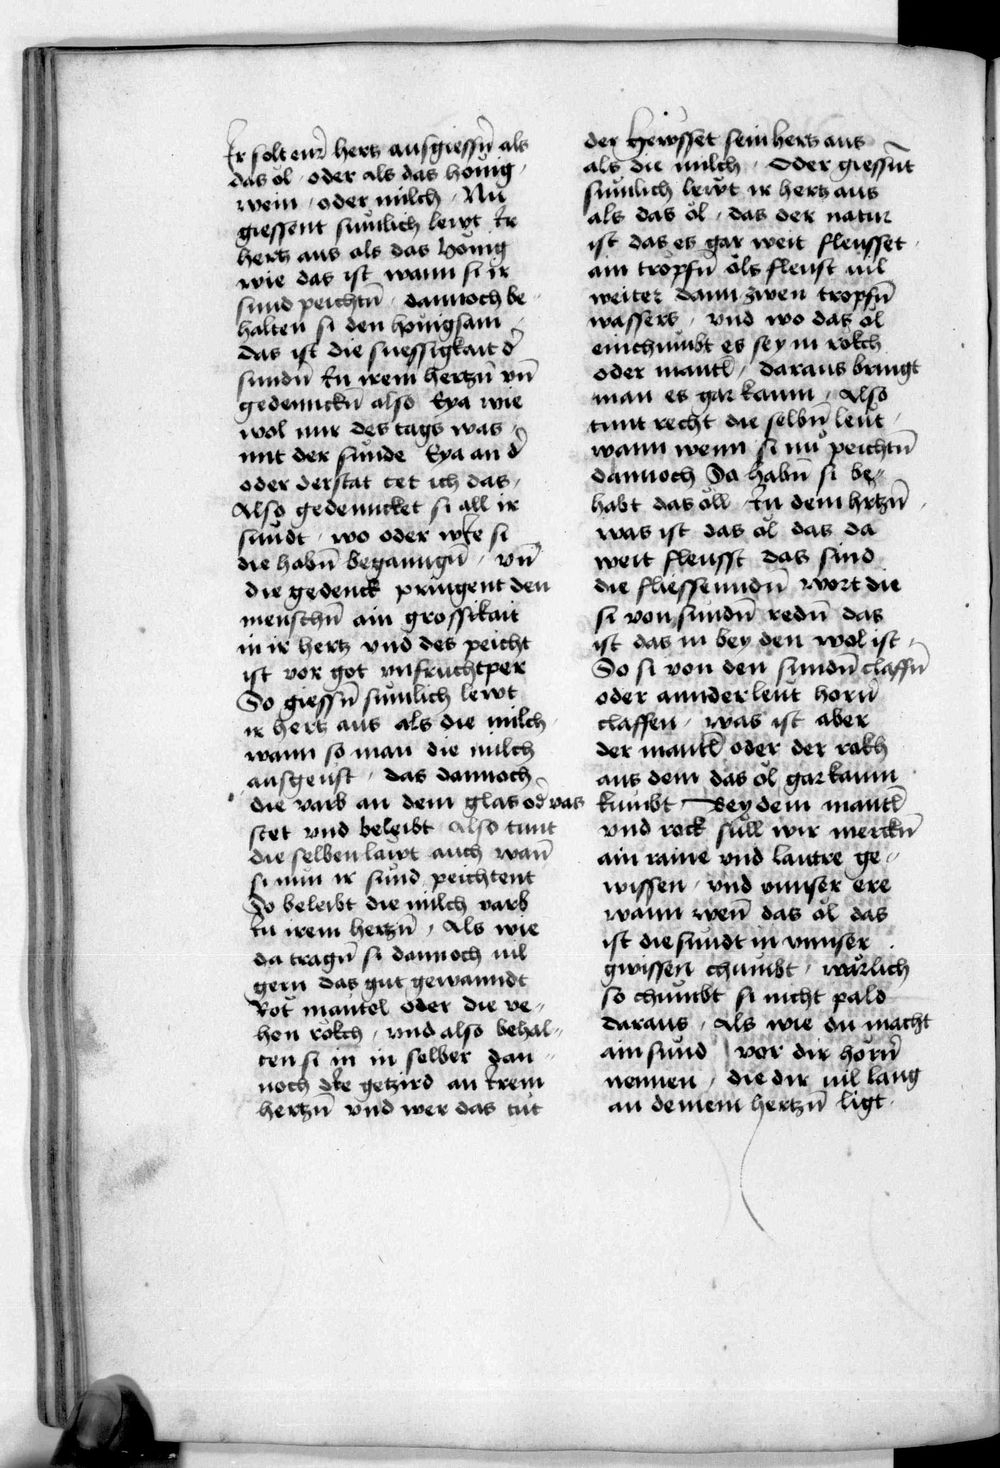 Ir solt eur̄ hertz ausgiessn̄ als
das öl · oder als das honig ·
wein · oder milch · Nu
giessent sümlich lewt Ir
hertz aus als das honig
wie das ist wann si ir
sund peichtn̄ · dannoch be-
halten si den honigsam
das ist die suessigkait d̄
sundn̄ In irem hertzn̄ vn̄
gedennckn̄ also Eya wie
wol mir des tags was ·
mit der sünde Eya an d̄
oder der stat tet ich das ·
Also gedenncket si all ir
sündt · wo oder wie si
die habn̄ beganngn̄ · vn̄
die gedenck pringent den
menschn̄ ain grossikait
in ir hertz vnd des peicht
ist vor got vnfruchtper
So giessn̄ sümlich lewt
ir hertz aus als die milch ·
wann so man die milch
ausgeust · das dannoch
die varb an dem glas od̄ vas
stet vnd beleibt Also tunt
die selben läwt auch wan̄
si nun ir sund peichtent
So beleibt die milch varb
In irem hertzn̄ · Als wie
da tragn̄ si dannoch uil
gern das gut gewanndt
Rot mäntel oder die ve-
hen rökch · vnd also behal-
ten si in in selber dan-
noch die getzird an Irem
hertzn̄ vnd wer das tüt
der Hewsset sein hertz aus
als die milch · Oder giessn̄t
sümlich lewt ir hertz aus
als das öl · das der natur
ist das es gar weit fleusset ·
ain tropfn̄ öls fleust uil
weiter dann zwen tropfn̄
wassers · vnd wo das öl
einchumbt es sey in rokch
oder mantl̄ · daraus bringt
man es gar kaum · Also
tunt recht die selbn̄ leüt ·
wann wenn si nu peichtn̄
dannoch So habn̄ si be-
habt das öll In dem hrtzn̄ ·
was ist das öl das da
weit fleusst das sind
die fliessenndn̄ wort die
si von sundn̄ redn̄ das
ist das in bey den wol ist ·
So si von den sundn̄ claffn̄
oder annder leüt horn̄
claffen · was ist aber
der mantl̄ oder der rokh
aus dem das öl gar kaum
kumbt Bey dem mantl̄
vnd rock süll wir merckn̄
ain raine vnd lautre ge-
wissen · vnd vnnser ere
wann wen̄ das öl das
ist die sundt in vnnser ·
gwissen chumbt · wärlich
so chumbt si nicht pald
daraus · Als wie du macht
ain sünd vor dir horn̄
nennen · die dir uil lang
an deinem hertzn̄ ligt ·